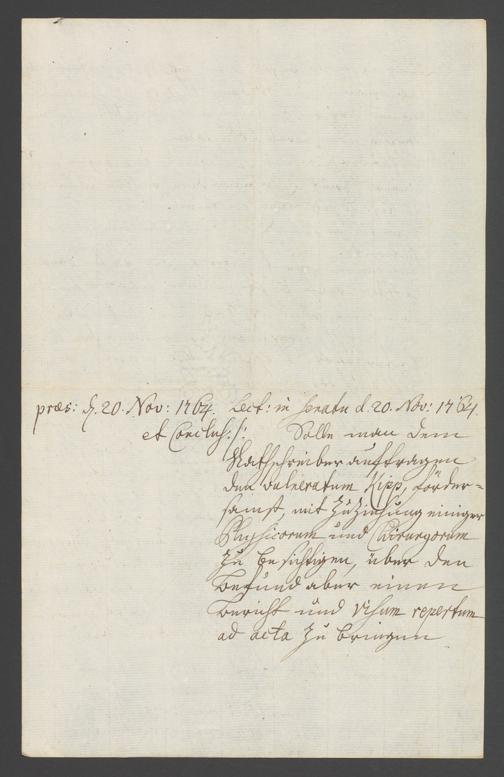 præs: d. 20. Nov: 1764. Lect: in Senatu d. 20. Nov: 1764.
et Conclus: /: Solle man dem
Rathschreiber aufftragen
den vulneratum Kipp, förder=
samst, mit Zuziehung einiger
Physicorum und Chirurgorum
zu besichtigen, über den
Befund aber einen
Bericht und Visum repertum
ad acta zu bringen